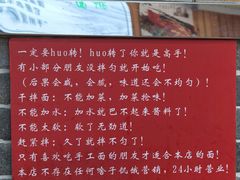 一定要huo转！huo转了你就是高手！
有小部分朋友没拌匀就开始吃！
（后果会咸，会腻，味道还会不均匀）
干拌面：不能加菜，加菜抢味！
不能加水：加水就巴不起来酱料了！
不能太软：软了无劲道！
赶紧拌：久了就拌不匀了！
只有喜欢吃手工面的朋友才适合本店的面！
本店不存在任何啥子饥饿营销，24小时营业！